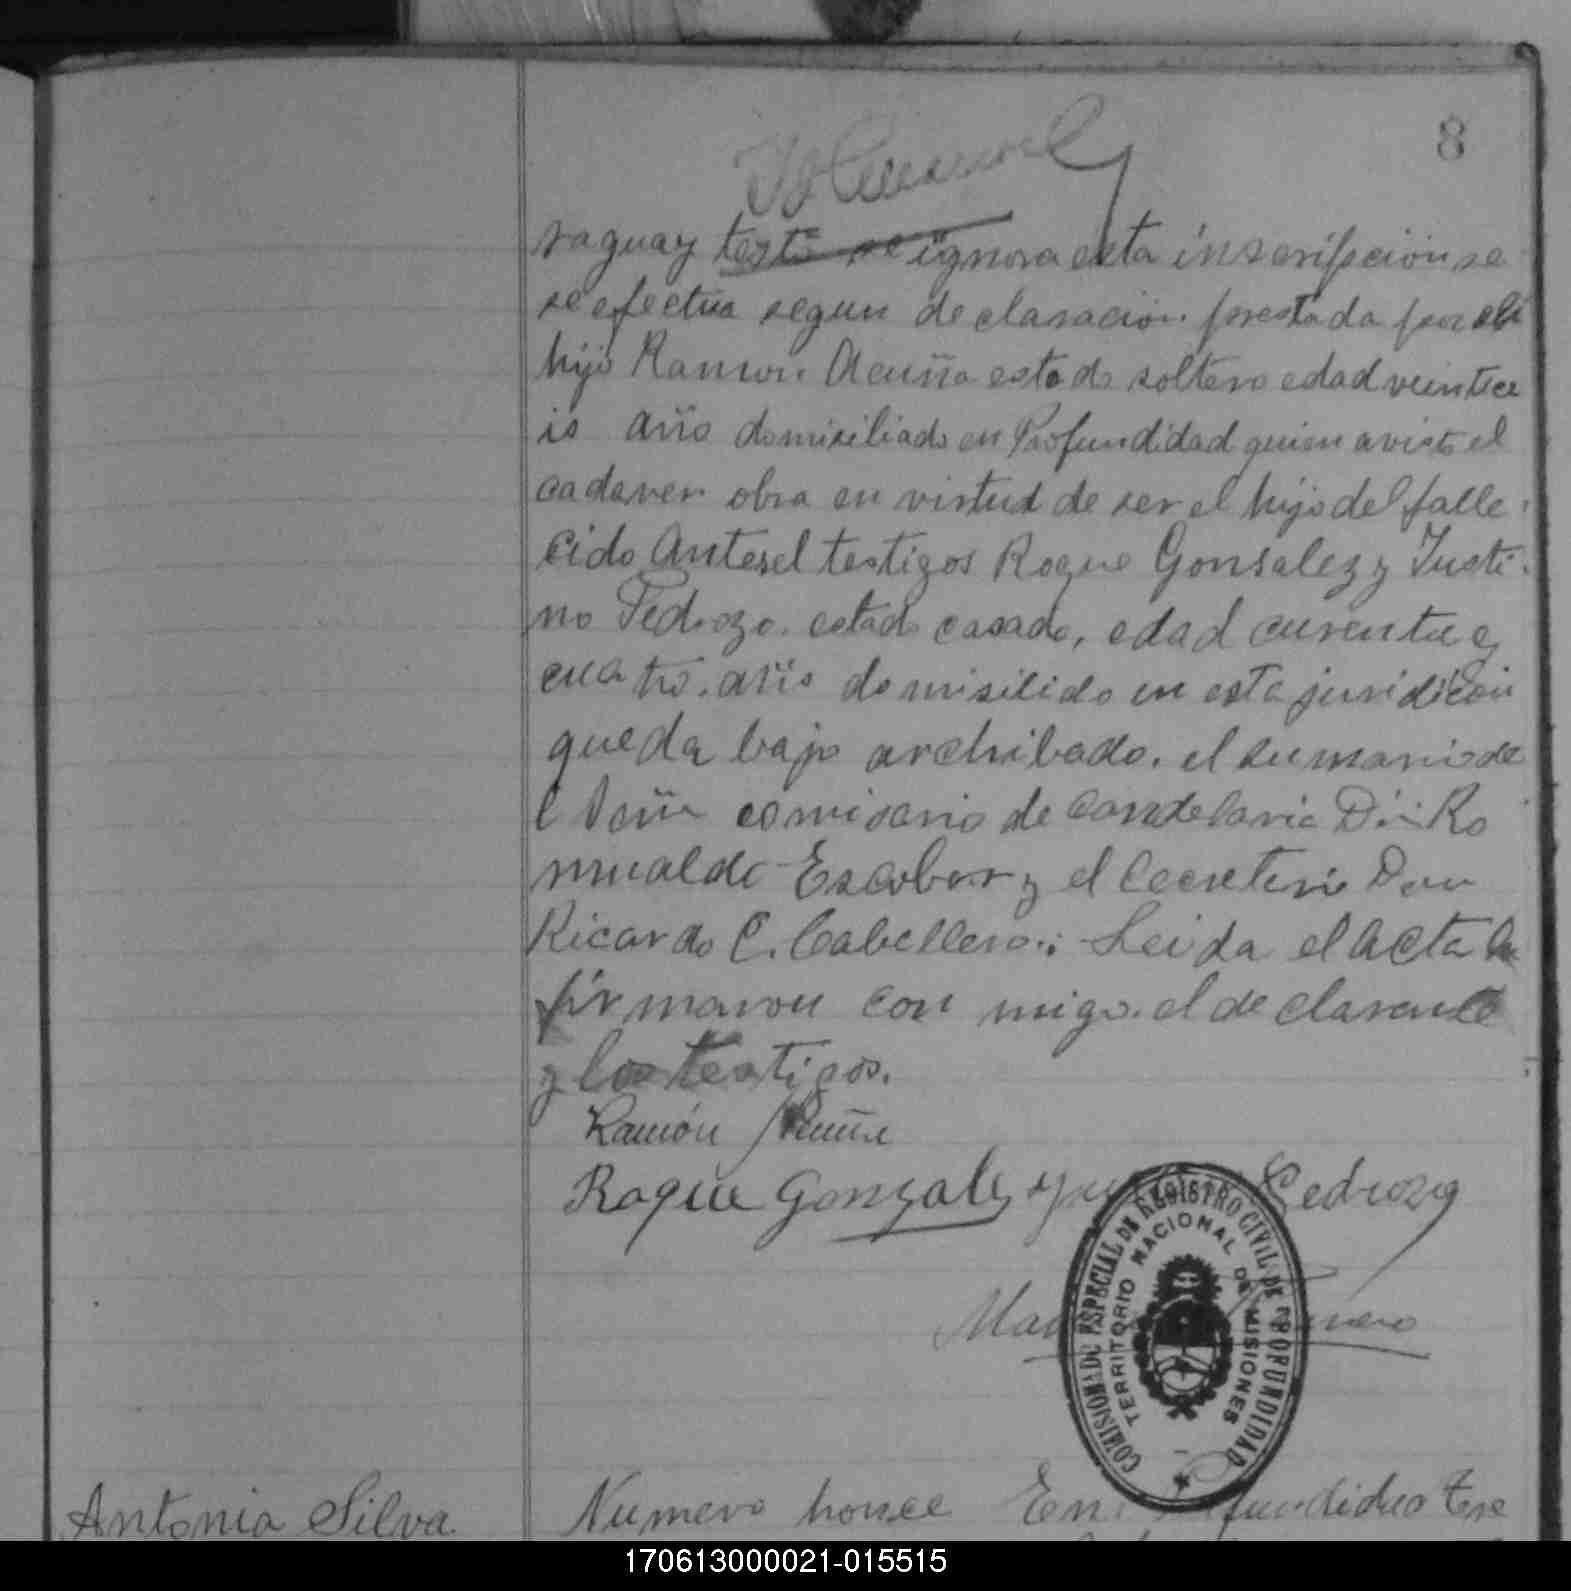 8
raguay testo se ignora esta inscripcion se
se efectua segun declaracion prestada por el
hijo Ramon Acuña estado soltero edad veintise
is año domisiliado en Profundidad quien a visto el
cadaver obra en virtud de ser el hijo del falle
cido Antesel testigos Roque Gonsalez y Justi
no Pedrozo. estado casado, edad curenta y
cuatro. año domisilido en esta juridicion
queda bajo archibado. el sumario de
l comisario de Candelaria Dn Ro
mualdo Escobar y el Secretario Don
Ricardo C. Caballero.: Leida el acta la
firmaron con migo. el declarante
y los testigos.
Ramón Acuña
Roque Gonzalez Pedrozo
COMISIONADO ESPECIAL DE REGISTRO CIVIL DE PROFUNDIDAD
TERRITORIO NACIONAL DE MISIONES
Antonia Silva
Numero honce En
170613000021-015515